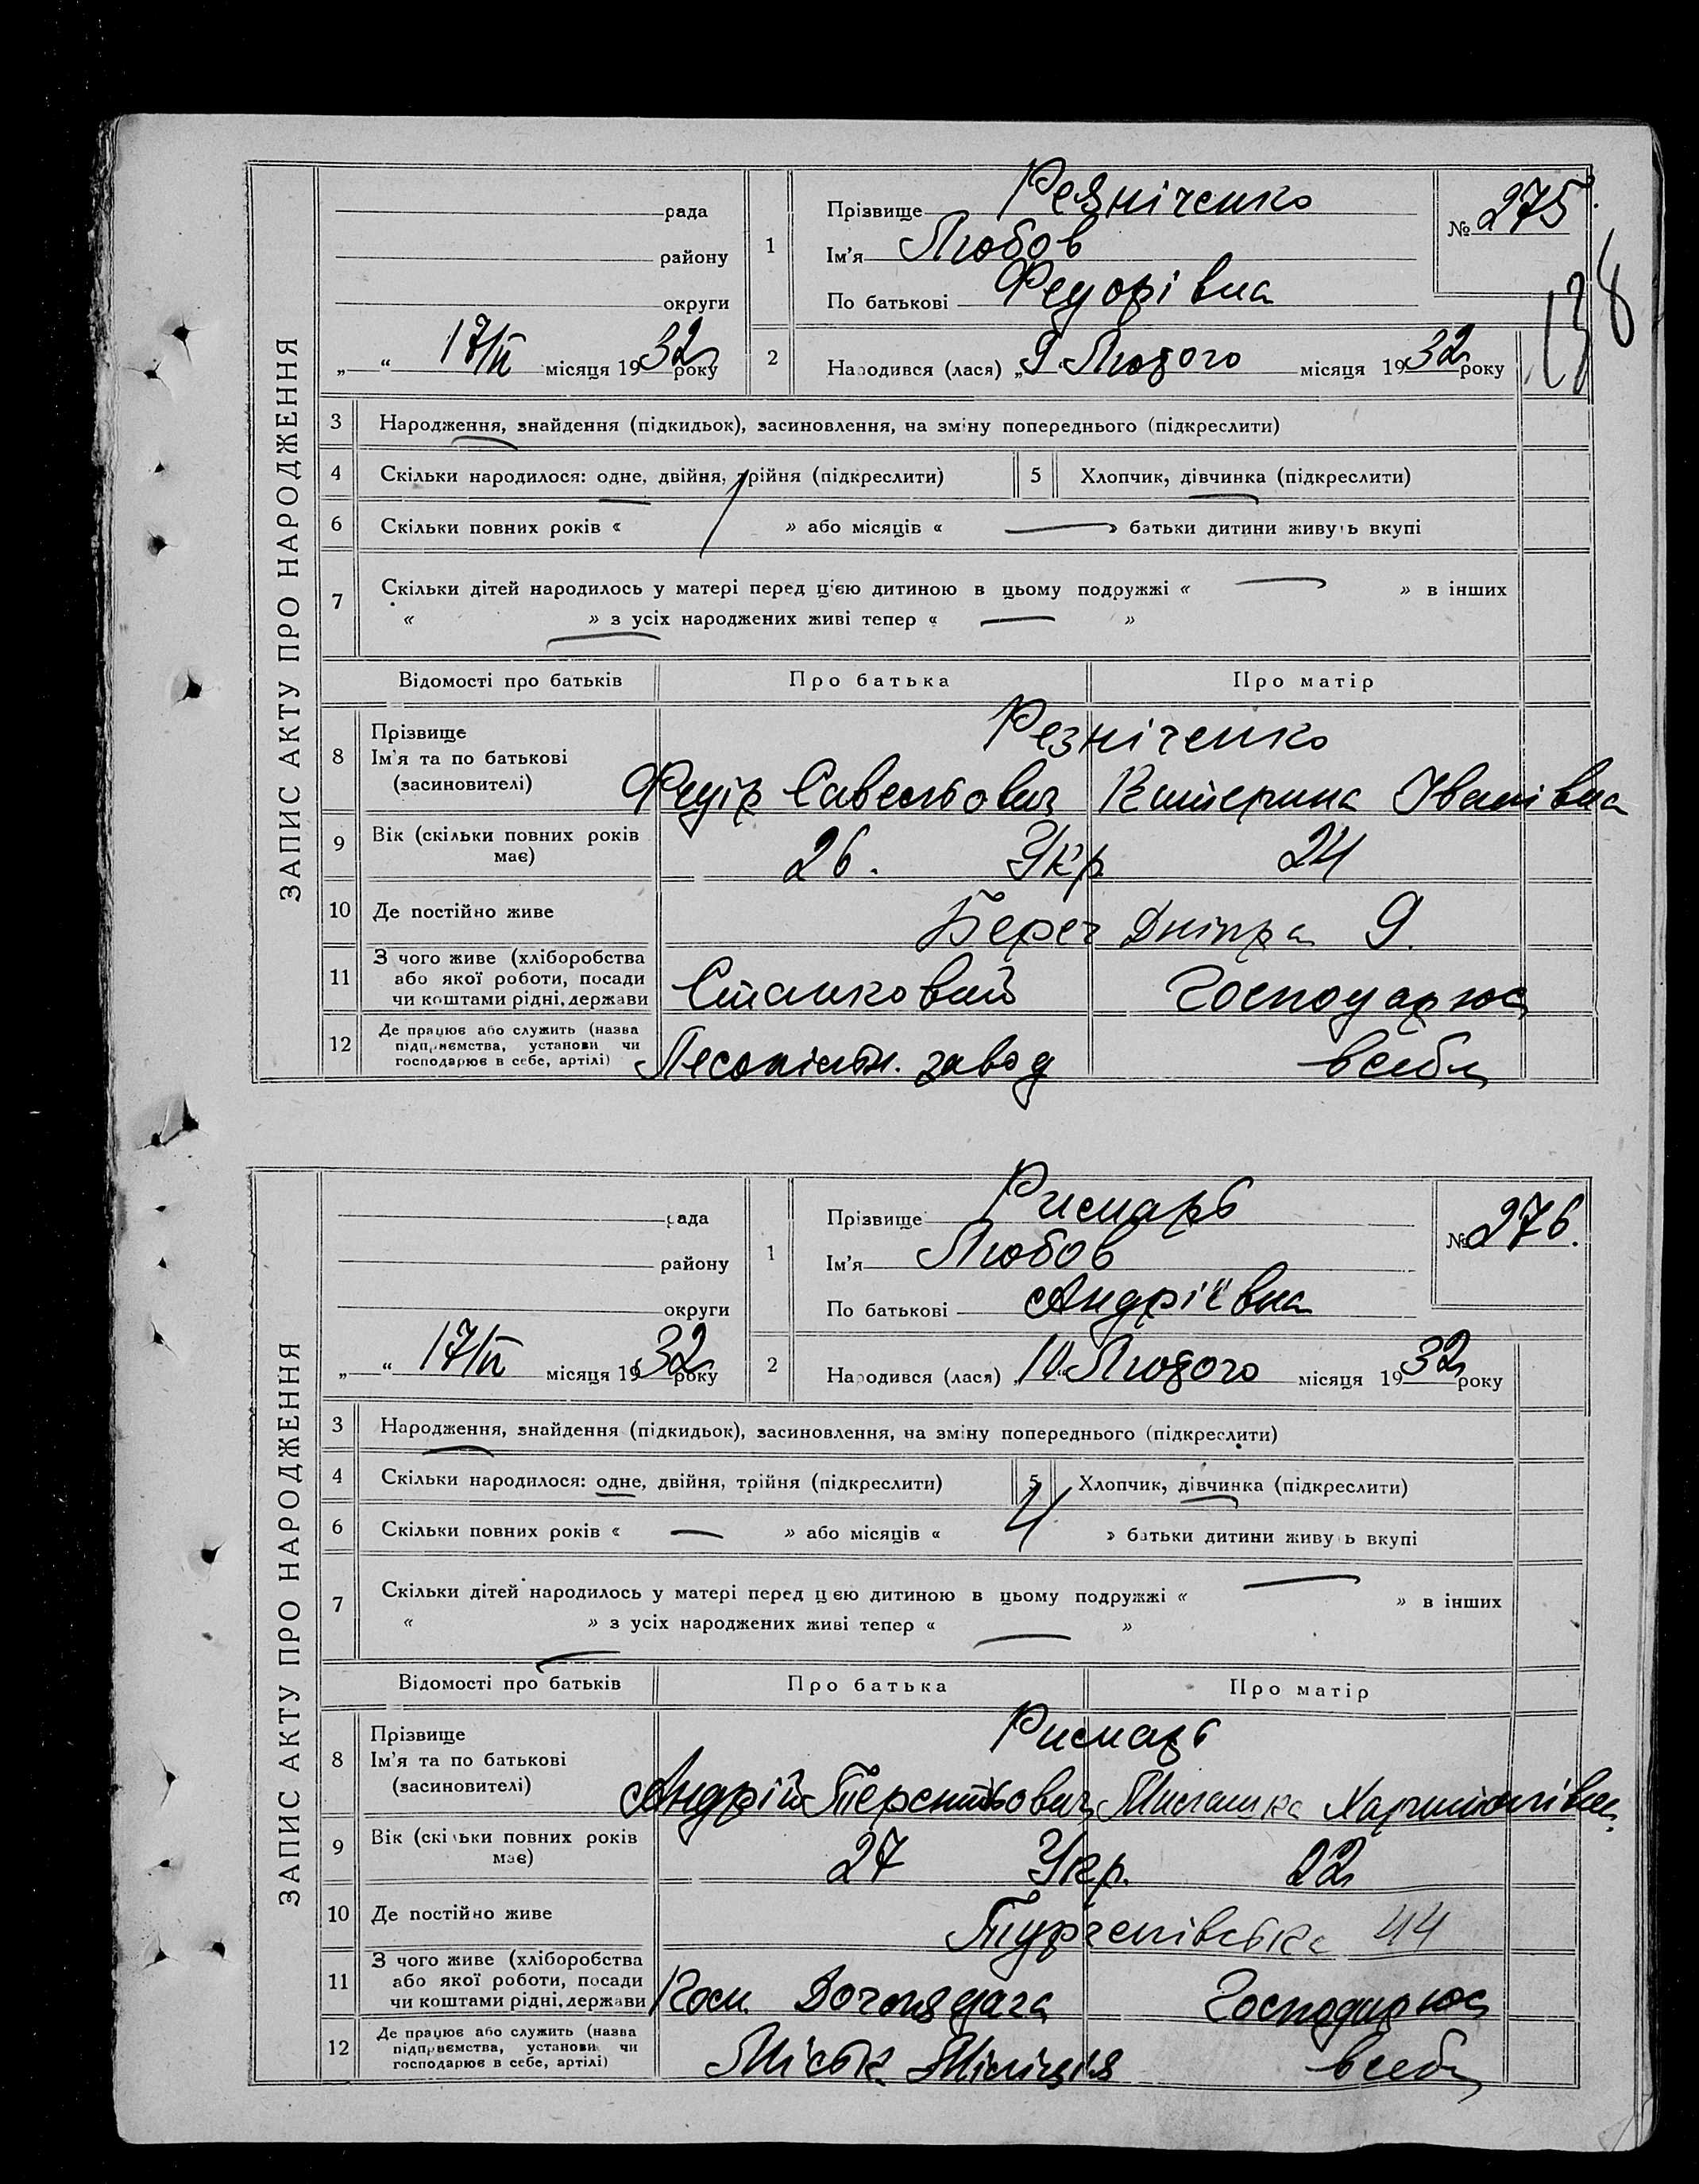 ЗАПИС АКТУ ПРО НАРОДЖЕННЯ
рада
району
округи
„ “ 17/II місяця 1932 року
1
Прізвище Резніченко
Ім'я Любов
По батькові Федорівна
№ 275.
138
2 Народився (лася) „9. Лютого місяця 1932 року
3 Народження, знайдення (підкидьок), засиновлення, на зміну попереднього (підкреслити)
4 Скільки народилося: одне, двійня, трійня (підкреслити) 5 Хлопчик, дівчинка (підкреслити)
6 Скільки повних років « » або місяців « — » батьки дитини живуть вкупі
7 Скільки дітей народилось у матері перед ц'єю дитиною в цьому подружжі « — » в інших
« — » з усіх народжених живі тепер « — »
Відомості про батьків Про батька Про матір
8 Прізвище Ім'я та по батькові (засиновителі) Резніченко
Федір Савельович Катерина Іванівна
9 Вік (скільки повних років має) 26. Укр 24
10 Де постійно живе Берег Дніпра 9.
11 З чого живе (хліборобства або якої роботи, посади чи коштами рідні, держави Станковий Господарює
12 Де працює або служить (назва підприємства, установи чи господарює в себе, артілі) завод всебе
ЗАПИС АКТУ ПРО НАРОДЖЕННЯ
рада
району
округи
„ “ 17/II місяця 1932 року
1
Прізвище Римарь
Ім'я Любов
По батькові Андріївна
№ 276.
2 Народився (лася) „10. Лютого місяця 1932 року
3 Народження, знайдення (підкидьок), засиновлення, на зміну попереднього (підкреслити)
4 Скільки народилося: одне, двійня, трійня (підкреслити) 5 Хлопчик, дівчинка (підкреслити)
6 Скільки повних років « — » або місяців « 4 » батьки дитини живуть вкупі
7 Скільки дітей народилось у матері перед цією дитиною в цьому подружжі « — » в інших
« — » з усіх народжених живі тепер « — »
Відомості про батьків Про батька Про матір
8 Прізвище Ім'я та по батькові (засиновителі) Римарь
Андрій Терентьович Харитонівна
9 Вік (скільки повних років має) 27 Укр. 22
10 Де постійно живе Тургенівська 44
11 З чого живе (хліборобства або якої роботи, посади чи коштами рідні, держави Господарює
12 Де працює або служить (назва підприємства, установи чи господарює в себе, артілі) Міськ Міліція всебе